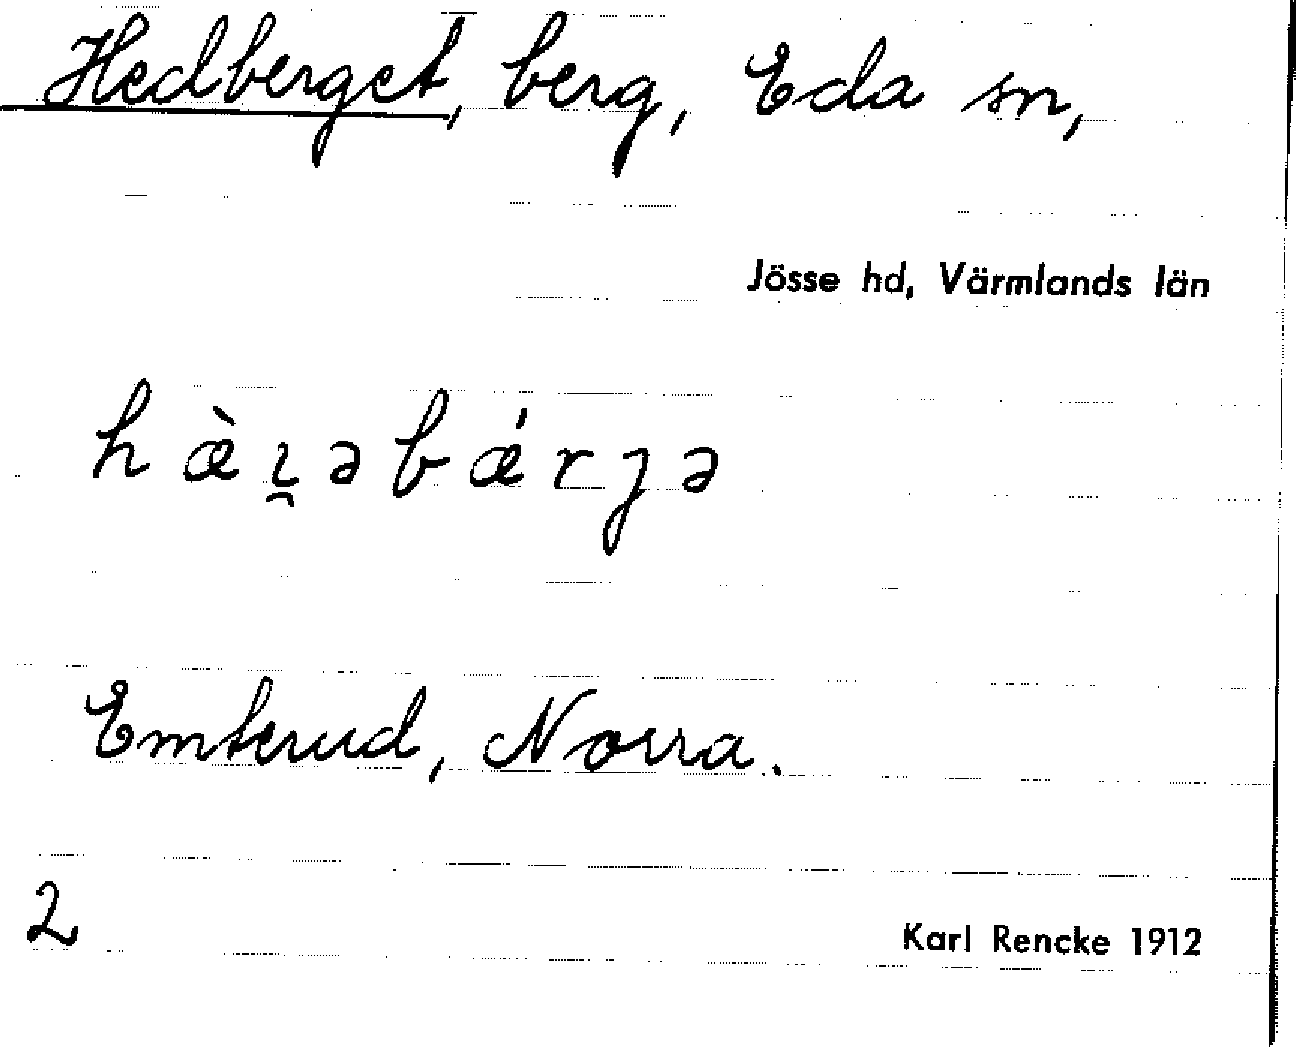 Hedberget, berg, Eda sn,
Jösse hd, Värmlands län
hæ̀ɩ̯əbǽrȷə
Emterud, Norra.
2
Karl Rencke 1912